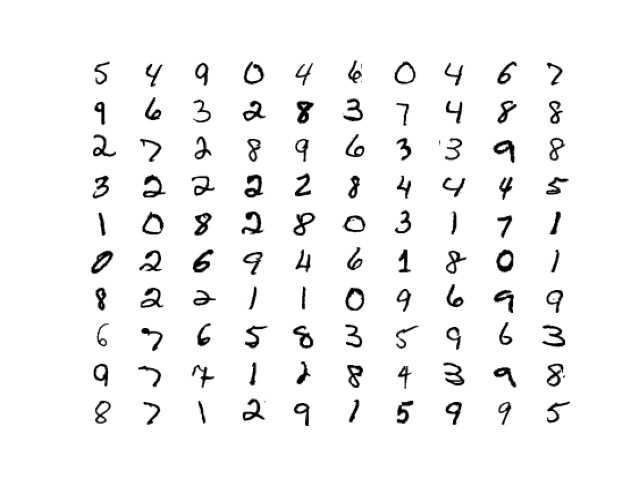 5 4 9 0 4 6 0 4 6 7
9 6 3 2 8 3 7 4 8 8
2 7 2 8 9 6 3 3 9 8
3 2 2 2 2 8 4 4 4 5
1 0 8 2 8 0 3 1 7 1
0 2 6 9 4 6 1 8 0 1
8 2 2 1 1 0 9 6 9 9
6 7 6 5 8 3 5 9 6 3
9 7 7 1 2 8 4 3 9 8
8 7 1 2 9 1 5 9 9 5